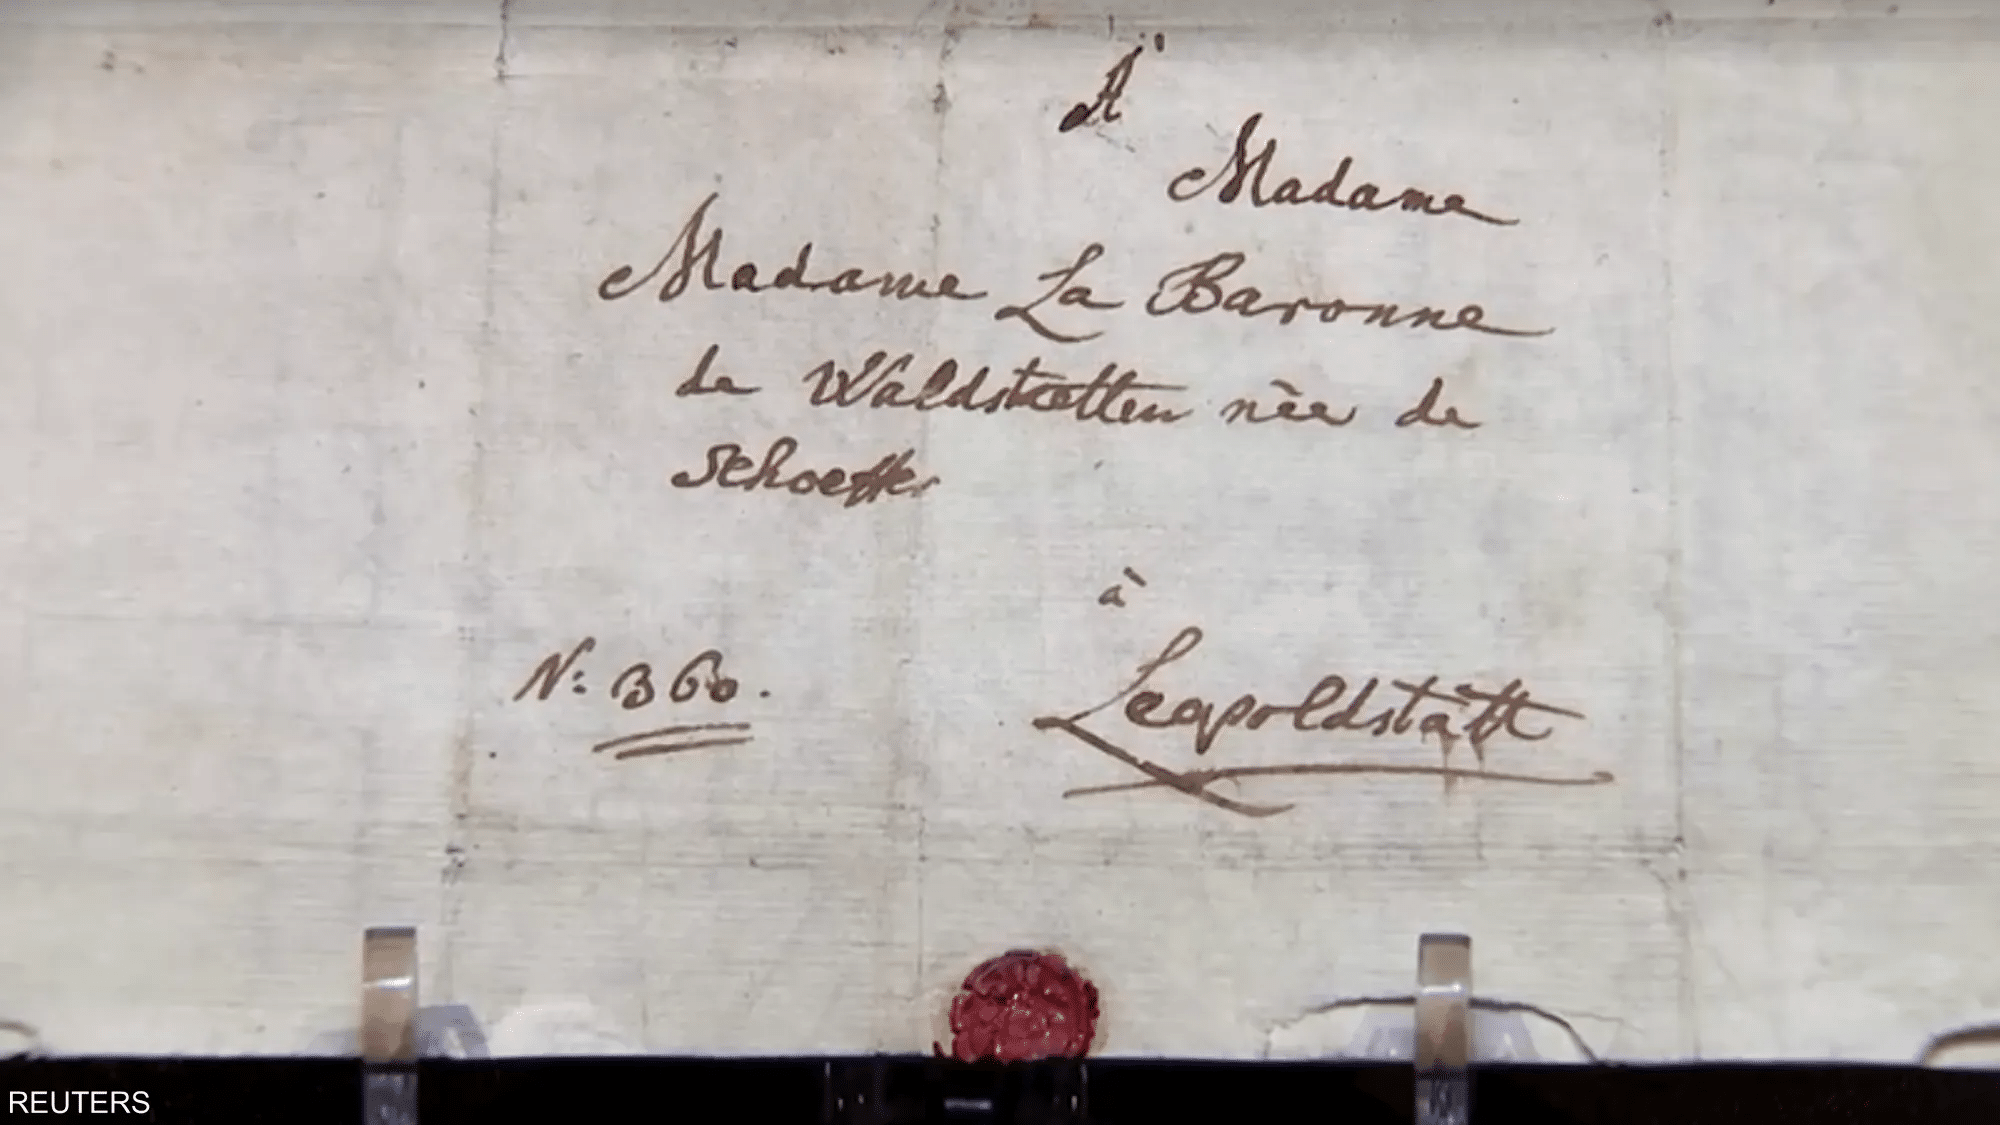 À
Madame
Madame La Baronne
de Waldstætten nèe de
Schoeffer
à
N: 360. Leopoldstätt
REUTERS